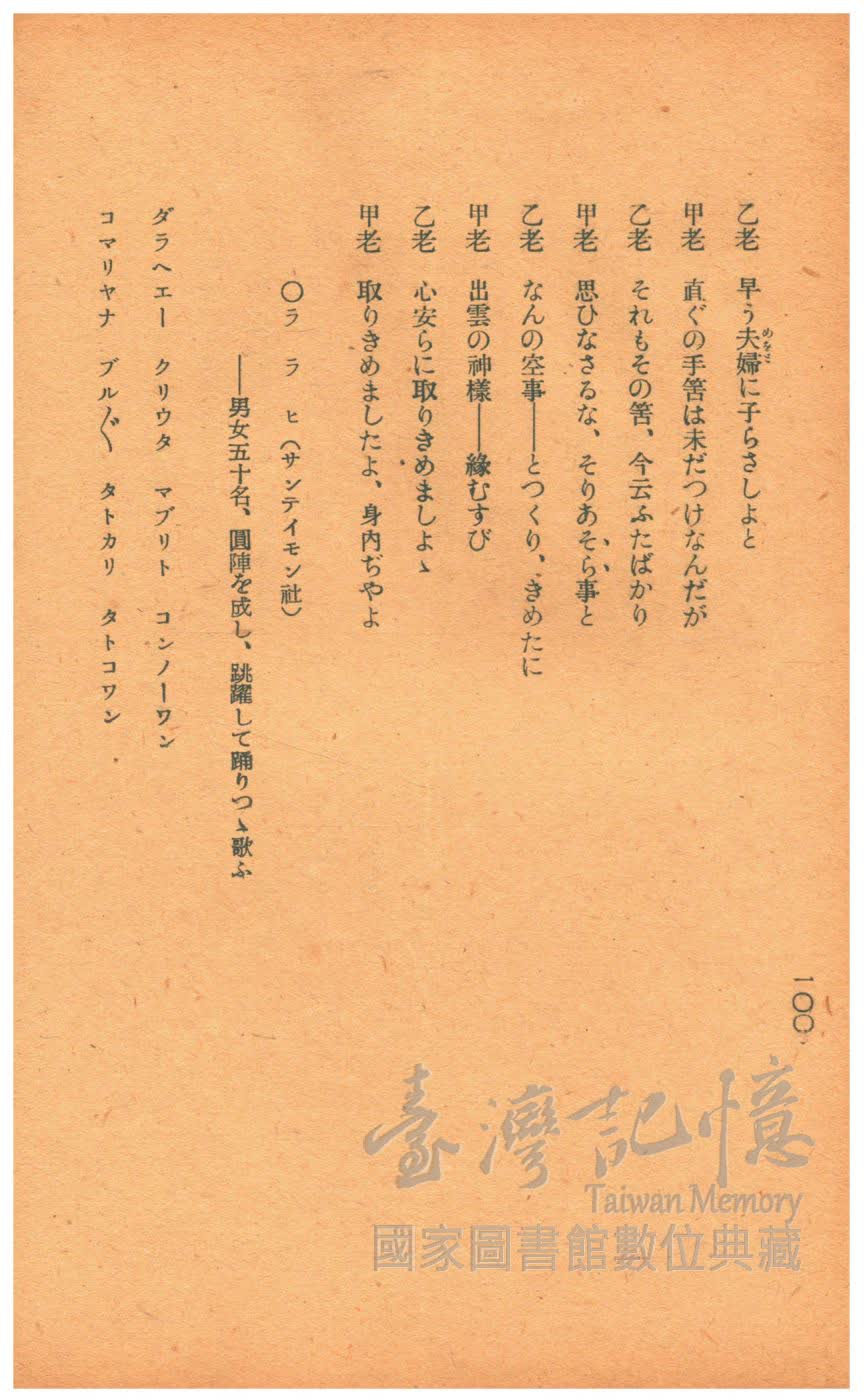 一〇〇
乙老　早う夫婦に子らさしよと
めをと
甲老　直ぐの手筈は未だつけなんだが
乙老　それもその筈、今云ふたばかり
甲老　思ひなさるな、そりあそら事と
乙老　なんの空事――とつくり、きめたに
甲老　出雲の神様――縁むすび
乙老　心安らに取りきめましよゝ
甲老　取りきめましたよ、身内ぢやよ
〇ララヒ（サンテイモン社）
――男女五十名、圓陣を成し、跳躍して踊りつゝ歌ふ
ダラヘエー　クリウタ　マブリト　コンノーワン
コマリヤナ　ブル〴〵　タトカリ　タトコワン
臺灣記憶
Taiwan Memory
國家圖書館數位典藏